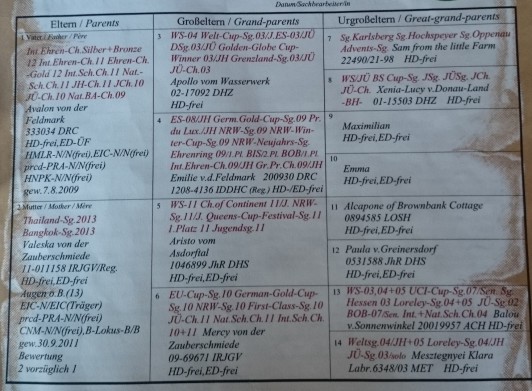 Datum/Sachbearbeiter/in
Eltern / Parents
Großeltern / Grand-parents
Urgroßeltern / Great-grand-parents
1 Vater / Father / Père
Int.Ehren-Ch.Silber+Bronze
12 Int.Ehren-Ch.11 Ehren-Ch.
-Gold 12 Int.Sch.Ch.11 Nat.-
Sch.Ch.11 JH-Ch.11 JCh.10
JÜ-Ch.10 Nat.BA-Ch.09
Avalon von der
Feldmark
333034 DRC
HD-frei,ED-ÜF
HMLR-N/N(frei),EIC-N/N(frei)
prcd-PRA-N/N(frei)
HNPK-N/N(frei)
gew.7.8.2009
2 Mutter / Mother / Mère
Thailand-Sg.2013
Bangkok-Sg.2013
Valeska von der
Zauberschmiede
11-011158 IRJGV/Reg.
HD-frei,ED-frei
Augen o.B.(13)
EIC-N/EIC(Träger)
prcd-PRA-N/N(frei)
CNM-N/N(frei),B-Lokus-B/B
gew.30.9.2011
Bewertung
2 vorzüglich 1
3 WS-04 Welt-Cup-Sg.03/J.ES-03/JÜ
DSg.03/JÜ Golden-Globe Cup-
Winner 03/JH Grenzland-Sg.03/JÜ
JÜ-Ch.03
Apollo vom Wasserwerk
02-17092 DHZ
HD-frei
4 ES-08/JH Germ.Gold-Cup-Sg.09 Pr.
du Lux./JH NRW-Sg.09 NRW-Win-
ter-Cup-Sg.09 NRW-Neujahrs-Sg.
Ehrenring 09/1.Pl. BIS/2.Pl. BOB/1.Pl.
Int.Ehren-Ch.09/JH Gr.Pr.Ch.09/JH
Emilie v.d.Feldmark 200930 DRC
1208-4136 IDDHC (Reg.) HD-/ED-frei
5 WS-11 Ch.of Continent 11/J. NRW-
Sg.11/J. Queens-Cup-Festival-Sg.11
1.Platz 11 Jugendsg.11
Aristo vom
Asdorftal
1046899 JhR DHS
HD-frei,ED-frei
6 EU-Cup-Sg.10 German-Gold-Cup-
Sg.10 NRW-Sg.10 First-Class-Sg.10
JÜ-Ch.11 Nat.Sch.Ch.11 Int.Sch.Ch.
10+11 Mercy von der
Zauberschmiede
09-69671 IRJGV
HD-frei,ED-frei
7 Sg.Karlsberg Sg.Hochspeyer Sg.Oppenau
Advents-Sg. Sam from the little Farm
22490/21-98 HD-frei
8 WS/JÜ BS Cup-Sg. JSg. JÜSg. JCh.
JÜ-Ch. Xenia-Lucy v.Donau-Land
-BH- 01-15503 DHZ HD-frei
9
Maximilian
HD-frei,ED-frei
10
Emma
HD-frei,ED-frei
11 Alcapone of Brownbank Cottage
0894583 LOSH
HD-frei,ED-frei
12 Paula v.Greinersdorf
0531588 JhR DHS
HD-frei,ED-frei
13 WS-03,04+05 UCI-Cup-Sg.07/Sen. Sg.
Hessen 03 Loreley-Sg.04+05 JÜ-Sg.02
BOB-07/Sen. Int.+Nat.Sch.Ch.04 Balou
v.Sonnenwinkel 20019957 ACH HD-frei
14 Weltsg.04/JH+05 Loreley-Sg.04/JH
JÜ-Sg.03/solo Mesztegnyei Klara
Labr.6348/03 MET HD-frei